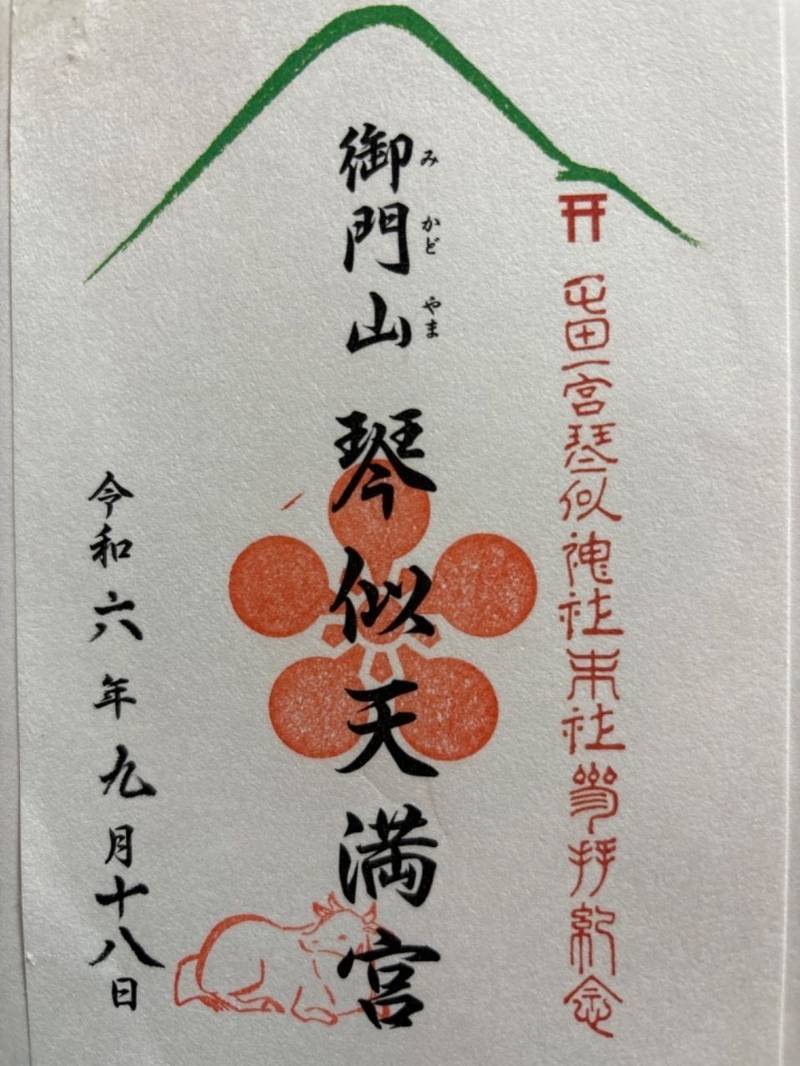 屯田一宮琴似神社末社参拝紀念
みかどやま
御門山 琴似天満宮
令和六年九月十八日